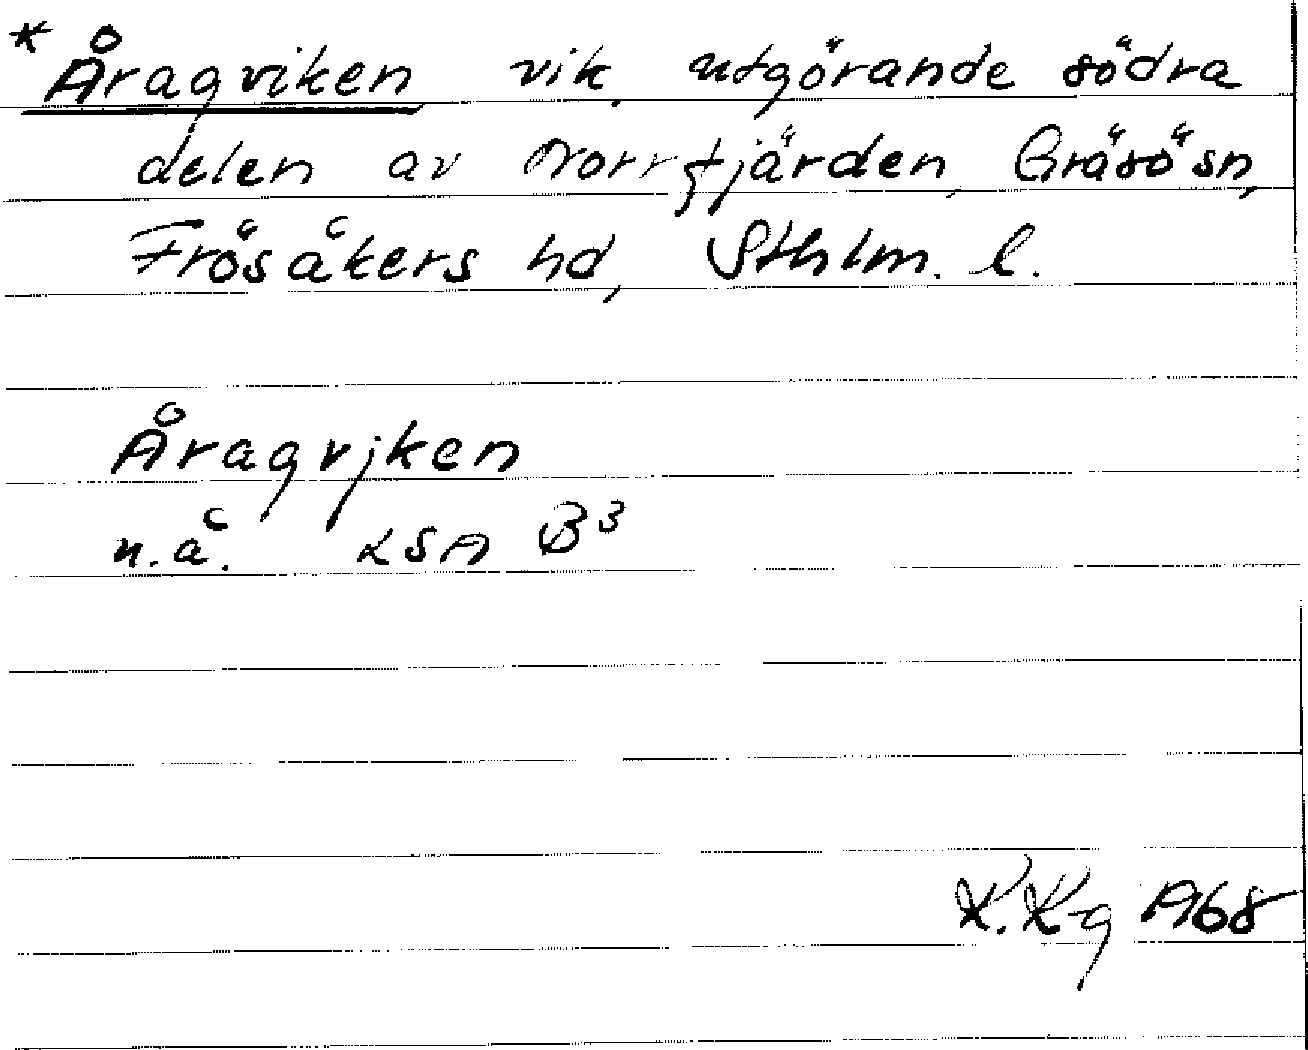 * Åragviken vik, utgörande södra
delen av Norrfjärden, Gräsö sn,
Frösåkers hd, Sthlm. l.
Åragvjken
n.å. LSA B3
K. Kg A68